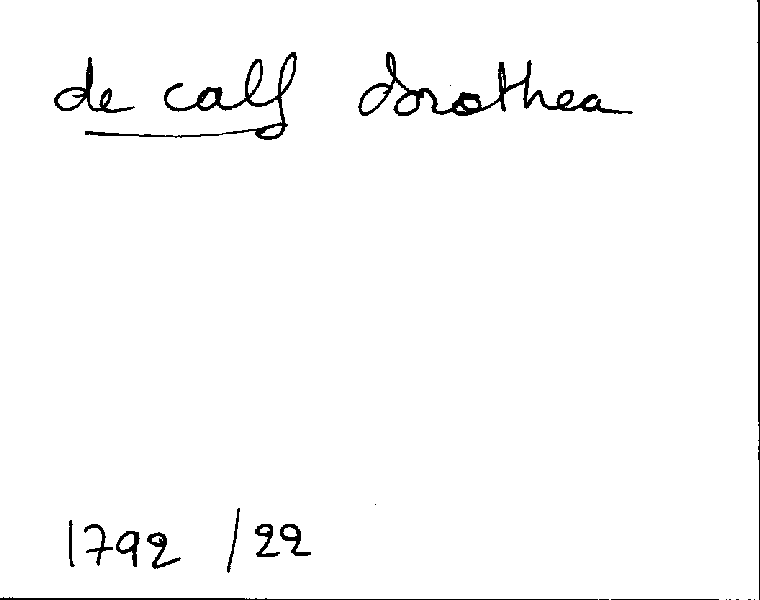 de calf dorothea
1792 /22